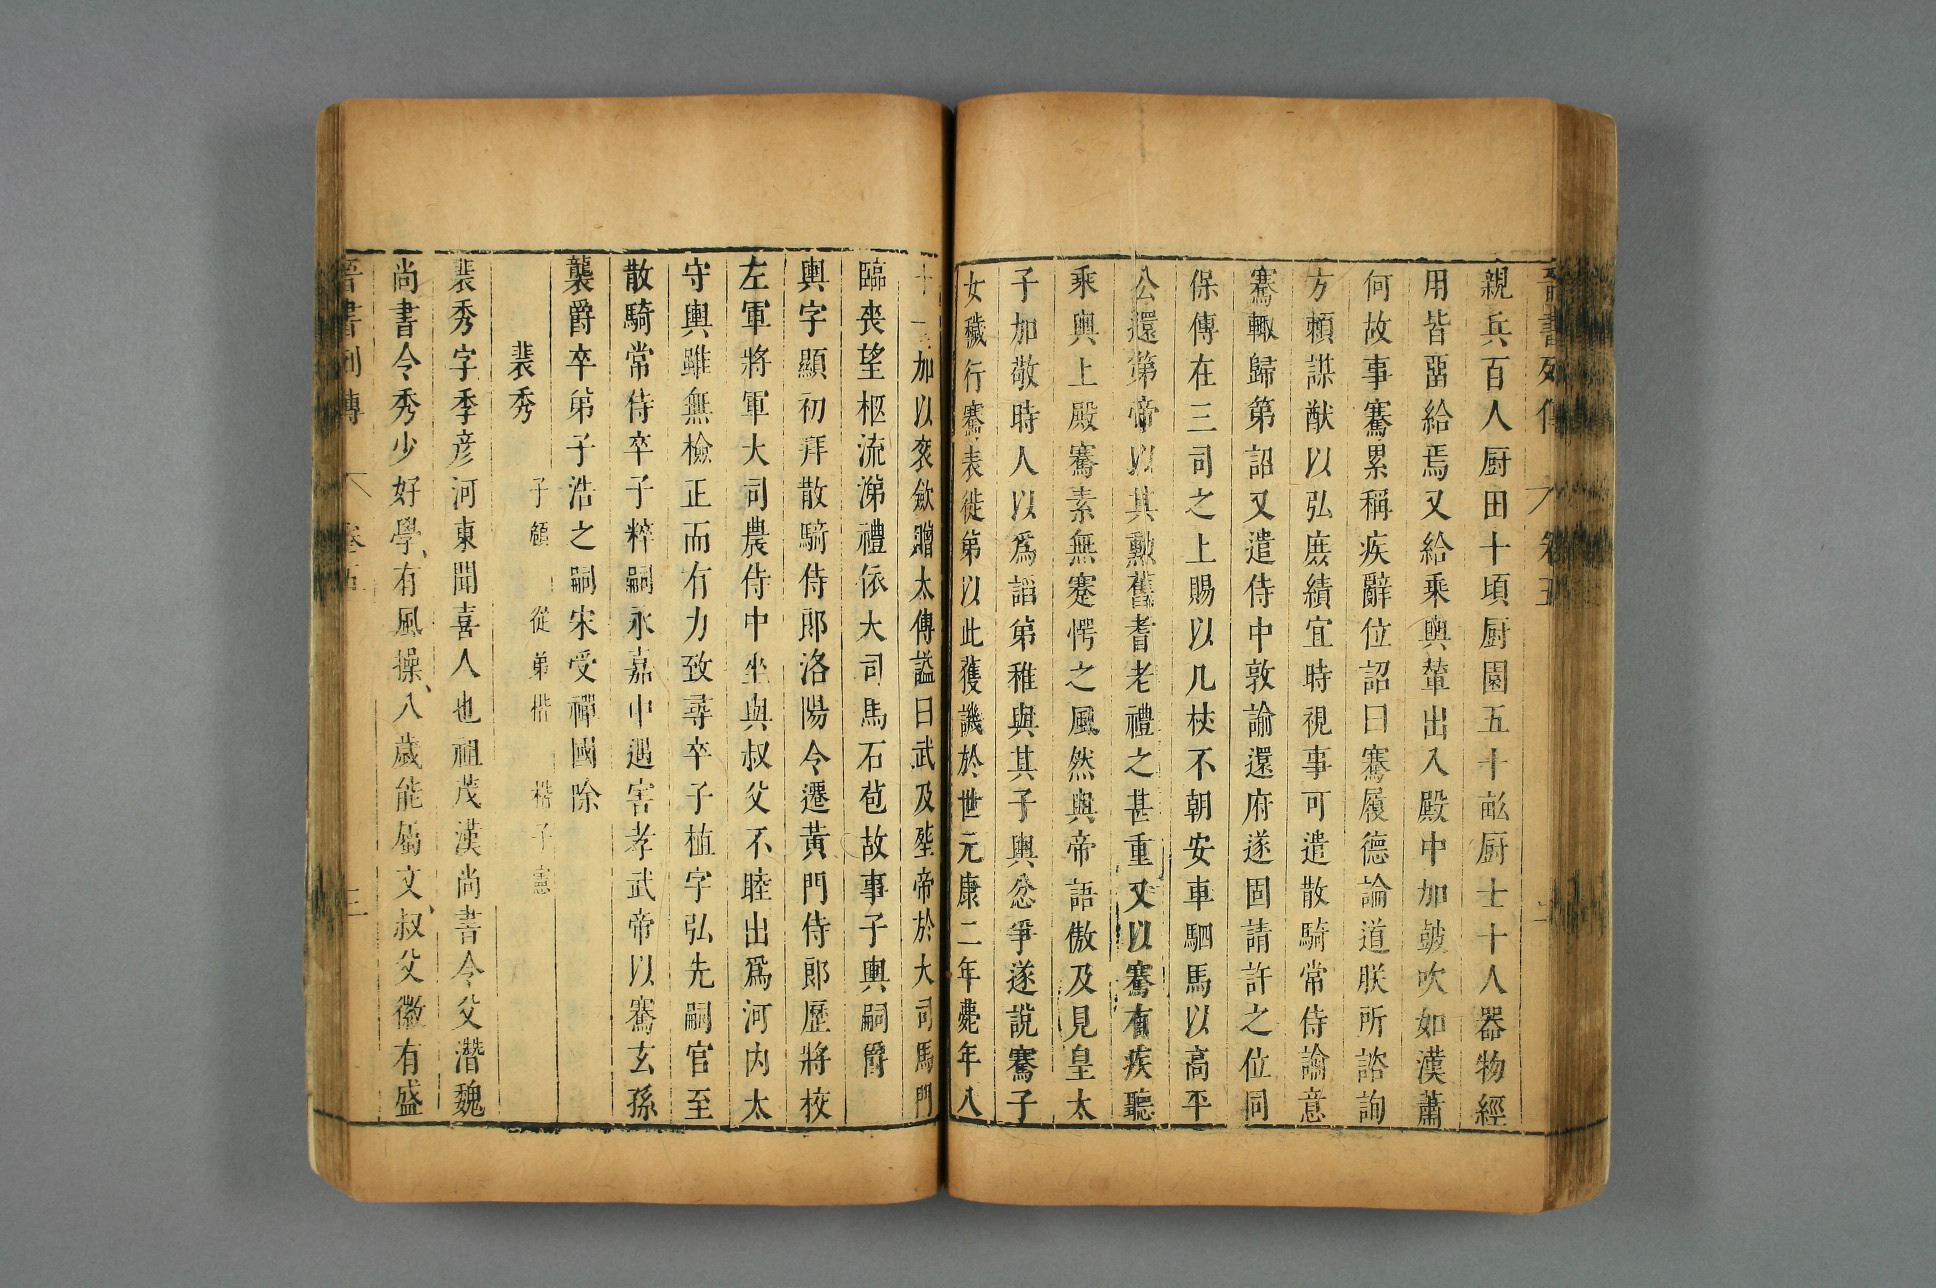 晉書列傳 卷五 二
親兵百人厨田十頃厨園五十畝厨士十人器物經
用皆畱給焉又給乘輿輦出入殿中加皷吹如漢蕭
何故事騫累稱疾辭位詔曰騫履德論道朕所諮詢
方頼謀猷以弘庶績宜時視事可遣散騎常侍諭意
騫輙歸第詔又遣侍中敦諭還府遂固請許之位同
保傅在三司之上賜以几杖不朝安車駟馬以高平
公還第帝以其勲舊耆老禮之甚重又以騫有疾聽
乘輿上殿騫素無蹇愕之風然與帝語傲及見皇太
子加敬時人以爲謟弟稚與其子輿忿爭遂說騫子
女穢行騫表徙弟以此獲譏於世元康二年薨年八
十一加以衮歛贈太傅謚曰武及塟帝於大司馬門
臨喪望柩流涕禮依大司馬石苞故事子輿嗣爵
輿字顯初拜散騎侍郎洛陽令遷黃門侍郎歷將校
左軍將軍大司農侍中坐與叔父不睦出爲河內太
守輿雖無檢正而有力致尋卒子植字弘先嗣官至
散騎常侍卒子粹嗣永嘉中遇害孝武帝以騫玄孫
襲爵卒弟子浩之嗣宋受禪國除
裴秀 子頠 從弟楷 楷子憲
裴秀字季彦河東聞喜人也祖茂漢尚書令父潛魏
尚書令秀少好學有風操八歲能屬文叔父徽有盛
晉書列傳 卷五 三